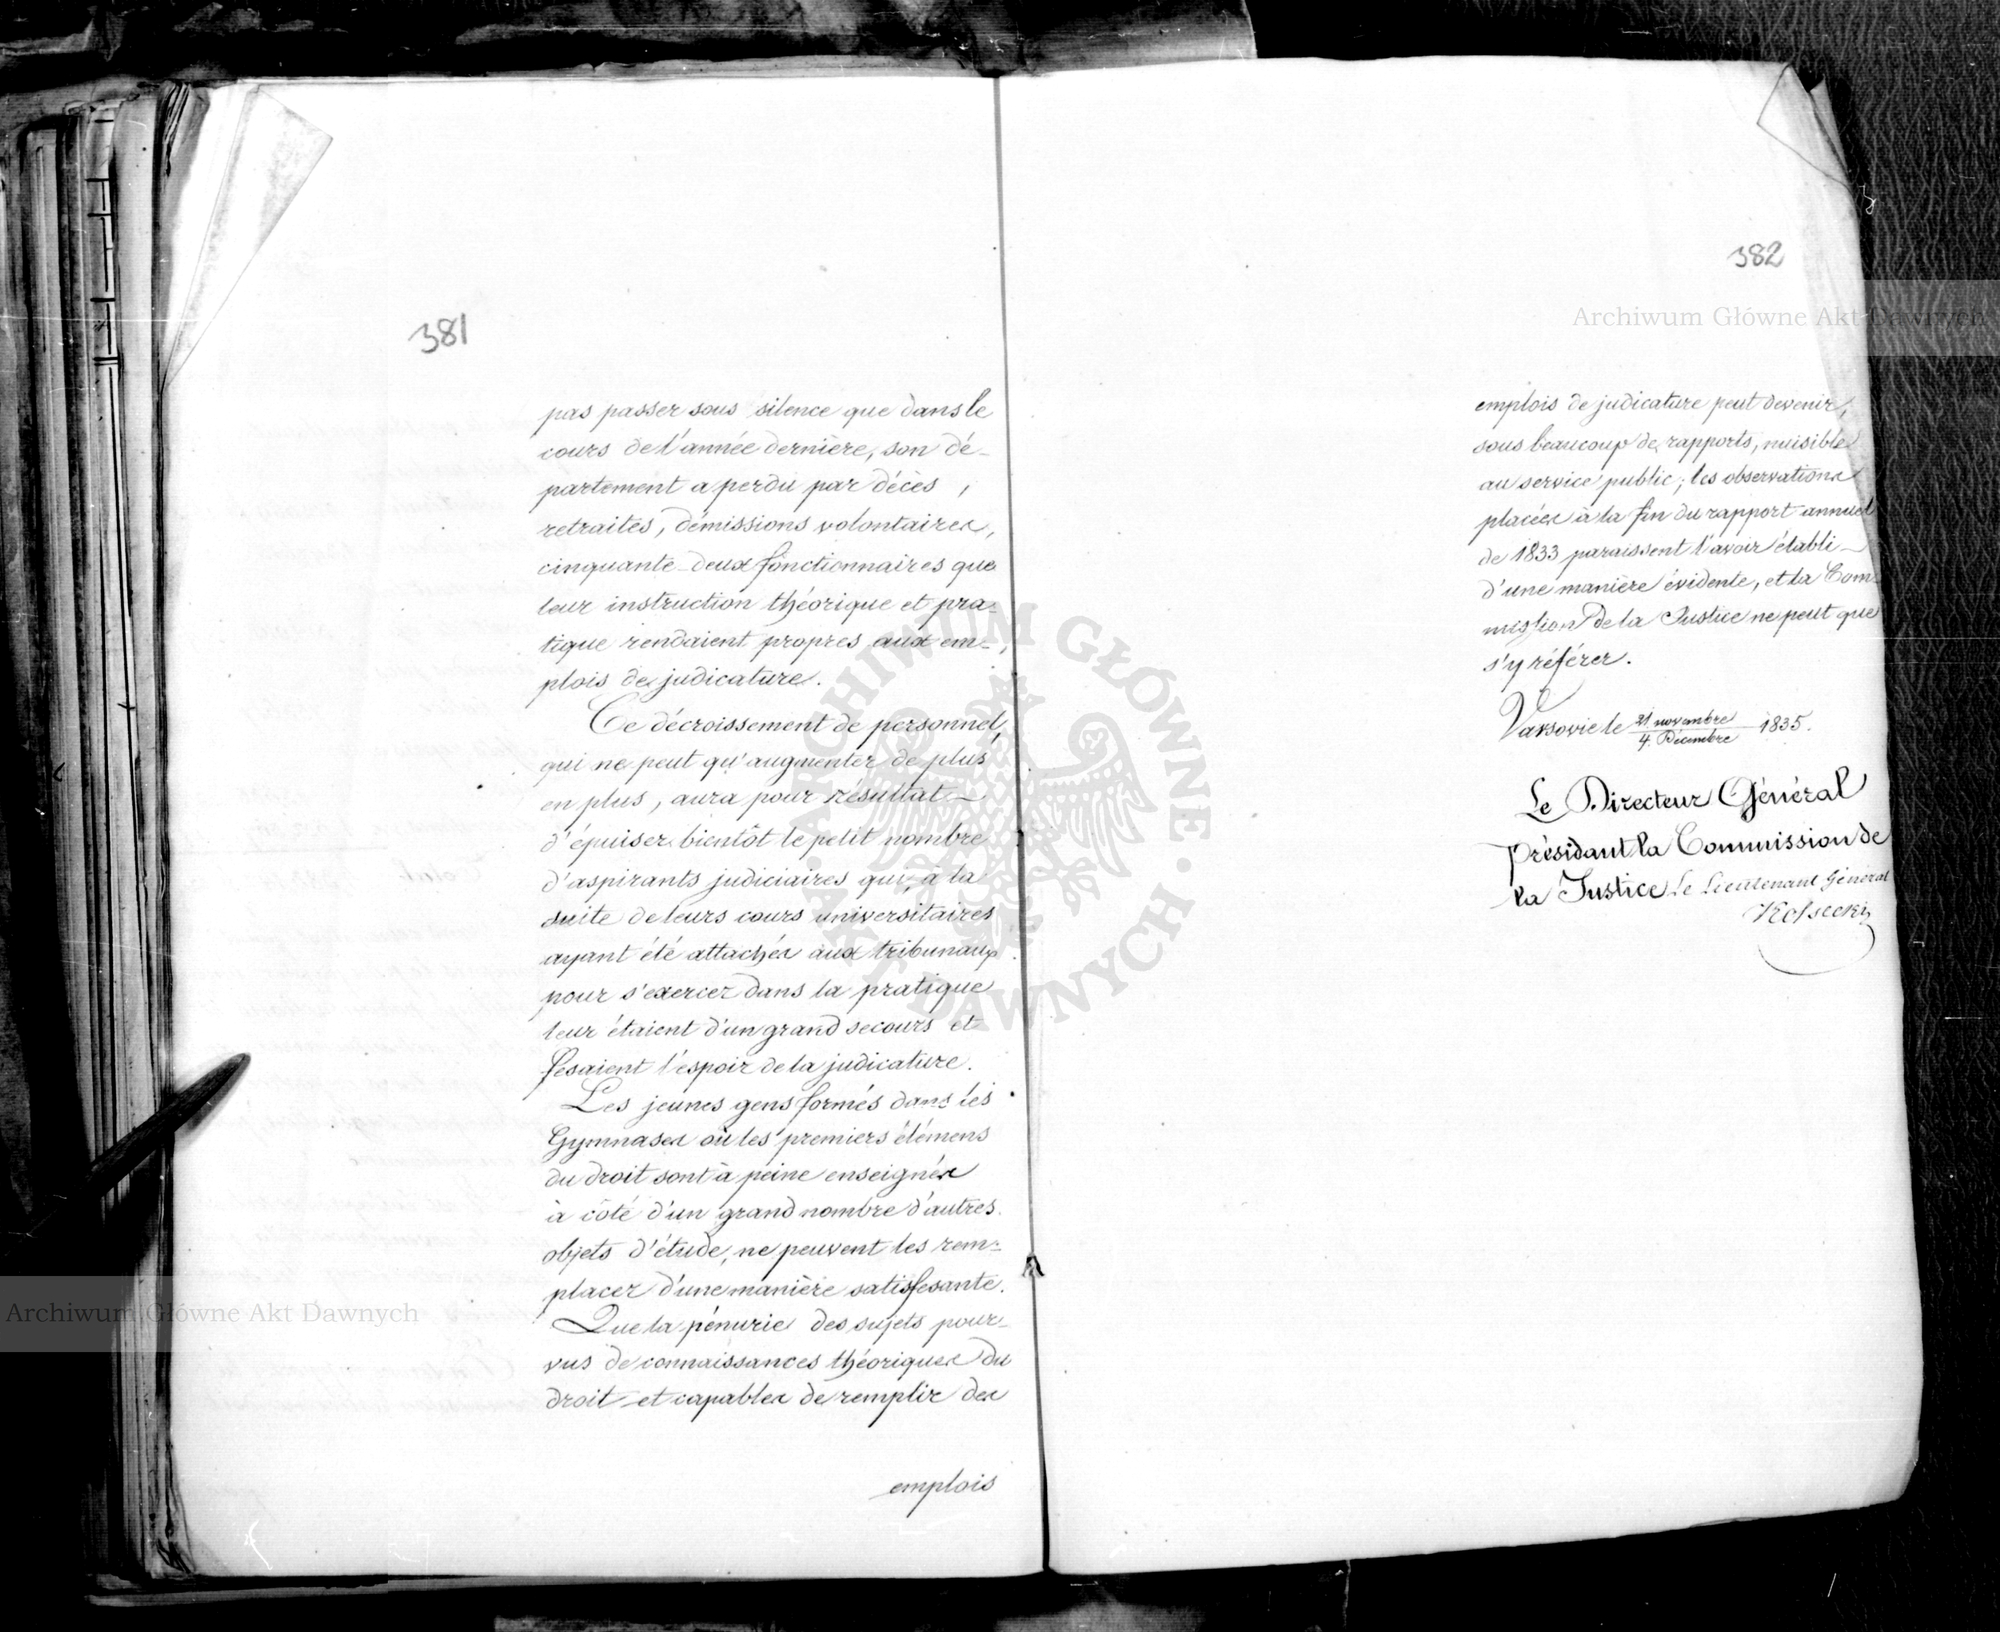 381
pas passer sous silence que dans le
cours de l'année dernière, son dé-
partement a perdu par décès,
retraités, démissions volontaires,
cinquante-deux fonctionnaires que
leur instruction théorique et pra-
tique rendaient propres aux em-
plois de judicature.
Ce décroissement de personnel,
qui ne peut qu'augmenter de plus
en plus, aura pour résultat
d'épuiser bientôt le petit nombre
d'aspirants judiciaires qui, à la
suite de leurs cours universitaires
ayant été attachés aux tribunaux
pour s'exercer dans la pratique
leur étaient d'un grand secours et
fesaient l'espoir de la judicature.
Les jeunes gens formés dans les
Gymnases où les premiers élémens
du droit sont à peine enseignés
à côté d'un grand nombre d'autres
objets d'étude, ne peuvent les rem-
placer d'une manière satisfesante.
Que la pénurie des sujets pour-
vus de connaissances théoriques du
droit et capables de remplir des
emplois
382
emplois de judicature peut devenir,
sous beaucoup de rapports, nuisible
au service public; les observations
placées à la fin du rapport annuel
de 1833 paraissent l'avoir établi
d'une manière évidente, et la Com-
mission de la Justice ne peut que
s'y référer.
Varsovie le 21 novembre / 4 Décembre 1835.
Le Directeur Général
Présidant la Commission de
la Justice Le Lieutenant Général
Kossecki
Archiwum Główne Akt Dawnych
Archiwum Główne Akt Dawnych
ARCHIWUM GŁÓWNE AKT DAWNYCH